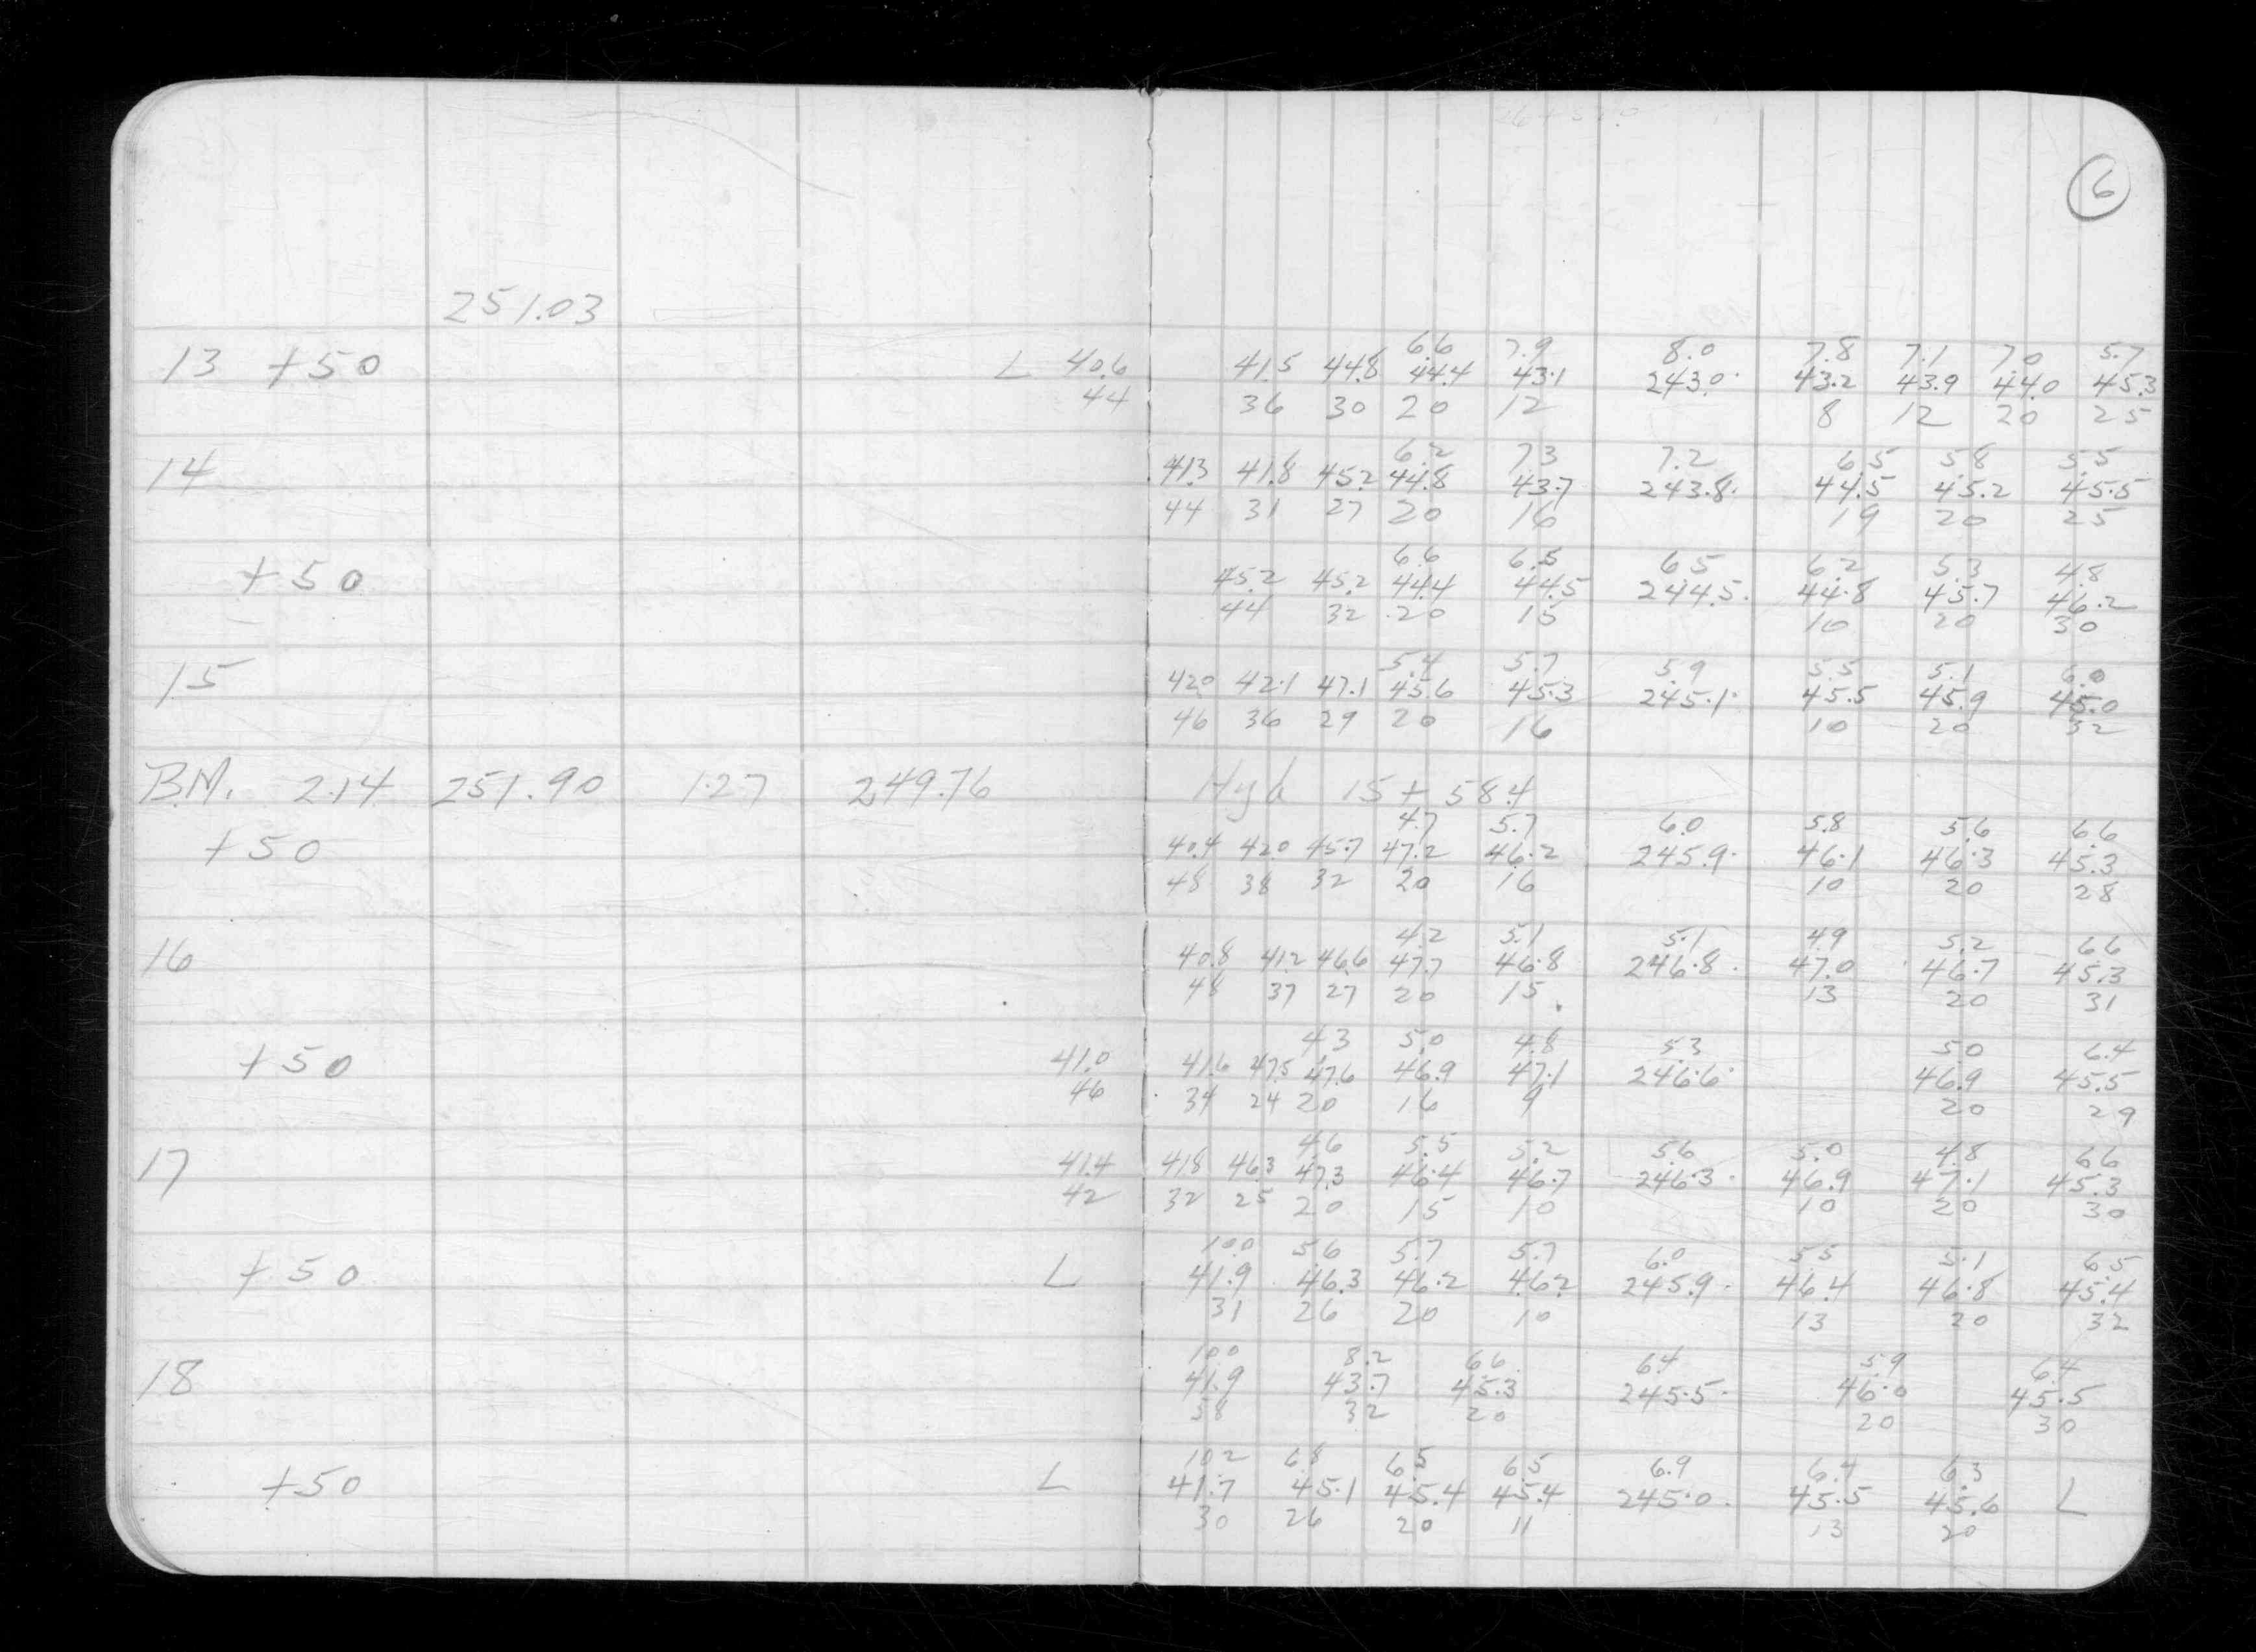 6
251.03
6.6 7.9 8.0 7.8 7.1 7.0 5.7
13 +50 L 40.6 41.5 44.8 44.4 43.1 243.0 43.2 43.9 44.0 45.3
44 36 30 20 12 8 12 20 25
6.2 7.3 7.2 6.5 5.8 5.5
14 41.3 41.8 45.2 44.8 43.7 243.8 44.5 45.2 45.5
44 31 27 20 16 19 20 25
6.6 6.5 6.5 6.2 5.3 4.8
+50 45.2 45.2 44.4 44.5 244.5 44.8 45.7 46.2
44 32 20 15 10 20 30
5.4 5.7 5.9 5.5 5.1 6.0
15 42.0 42.1 47.1 45.6 45.3 245.1 45.5 45.9 45.0
46 36 29 20 16 10 20 32
B.M. 2.14 251.90 1.27 249.76 Hyd 15+58.4
4.7 5.7 6.0 5.8 5.6 6.6
+50 40.4 42.0 45.7 47.2 46.2 245.9 46.1 46.3 45.3
48 38 32 20 16 10 20 28
4.2 5.1 5.1 4.9 5.2 6.6
16 40.8 41.2 46.6 47.7 46.8 246.8 47.0 46.7 45.3
48 37 27 20 15 13 20 31
4.3 5.0 4.8 5.3 5.0 6.4
+50 41.0 41.6 47.5 47.6 46.9 47.1 246.6 46.9 45.5
46 34 24 20 16 9 20 29
4.6 5.5 5.2 5.6 5.0 4.8 6.6
17 41.4 41.8 46.3 47.3 46.4 46.7 246.3 46.9 47.1 45.3
42 32 25 20 15 10 10 20 30
10.0 5.6 5.7 5.7 6.0 5.5 5.1 6.5
+50 L 41.9 46.3 46.2 46.2 245.9 46.4 46.8 45.4
31 26 20 10 13 20 32
10.0 8.2 6.6 6.4 5.9 6.4
18 41.9 43.7 45.3 245.5 46.0 45.5
38 32 20 20 30
10.2 6.8 6.5 6.5 6.9 6.4 6.3
+50 L 41.7 45.1 45.4 45.4 245.0 45.5 45.6 L
30 26 20 11 13 20